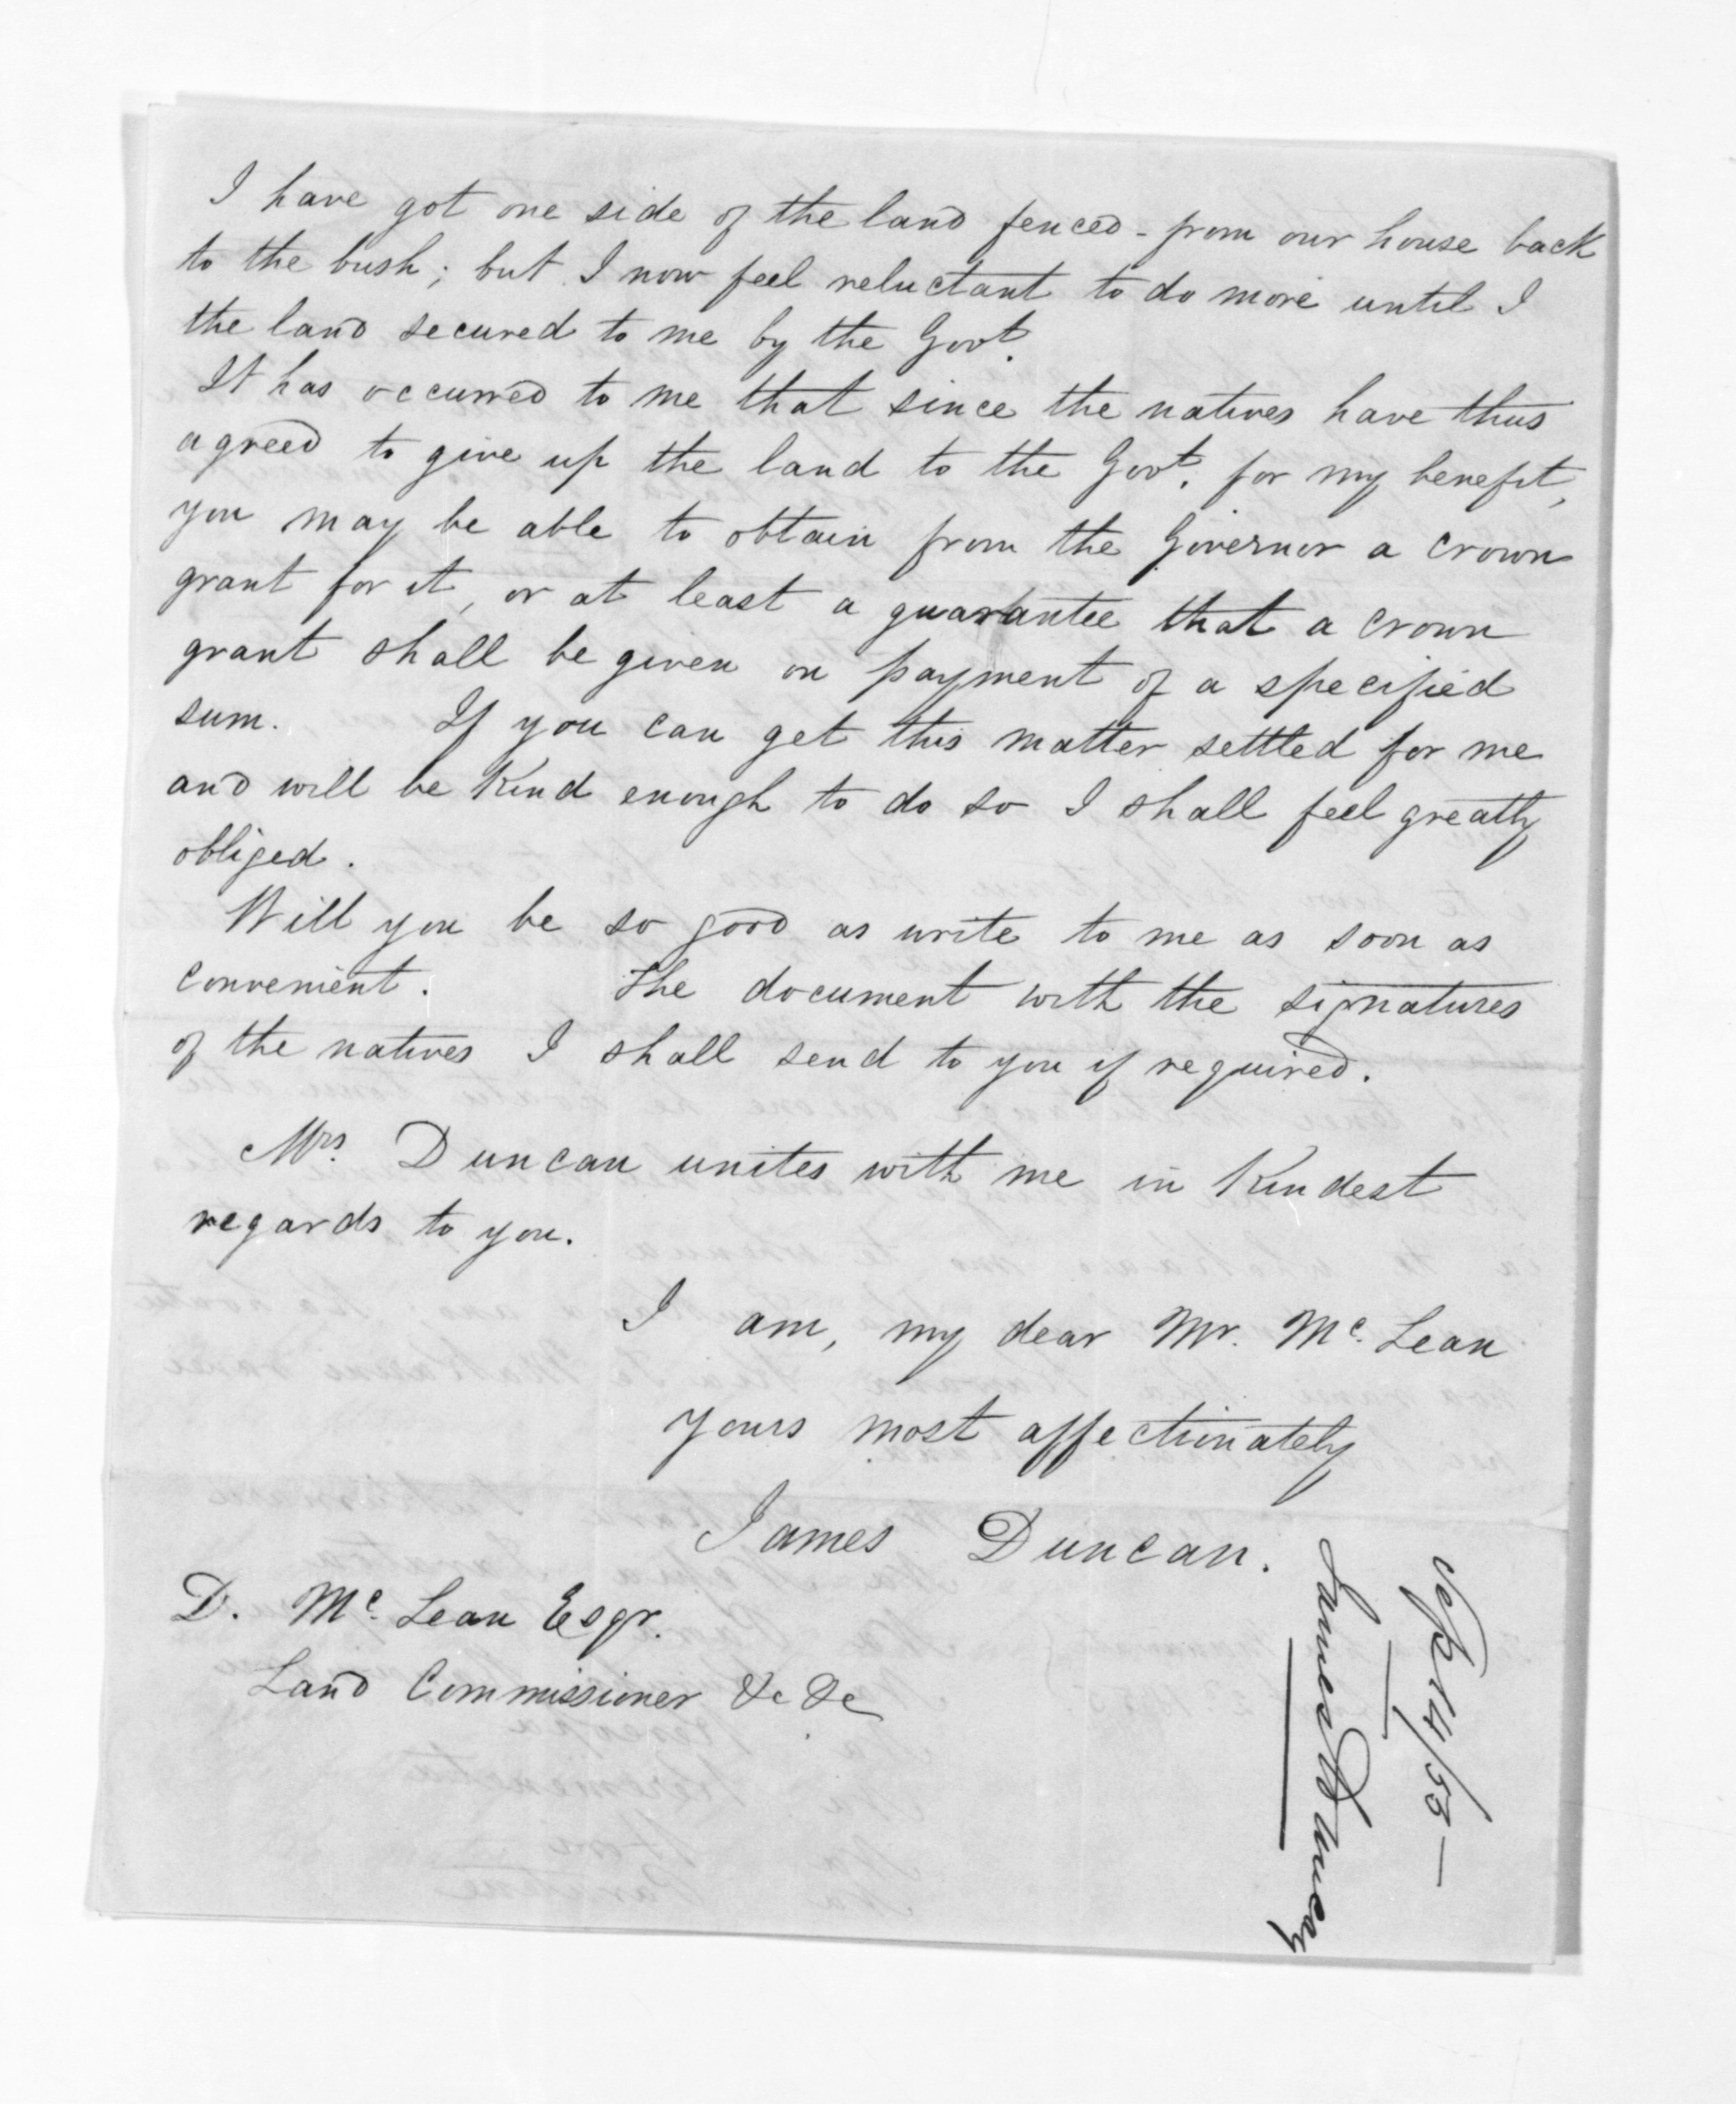 I have got one side of the land fenced - from our house back
to the bush; but I now feel reluctant to do more until I
the land secured to me by the Govt.
It has occurred to me that since the natives have thus
agreed to give up the land to the Govt. for my benefit,
you may be able to obtain from the Governor a crown
grant for it, or at least a guarantee that a crown
grant shall be given on payment of a specified
sum. If you can get this matter settled for me
and will be kind enough to do so I shall feel greatly
obliged.
Will you be so good as write to me as soon as
convenient. The document with the signatures
of the natives I shall send to you if required.
Mrs. Duncan unites with me in kindest
regards to you.
I am, my dear Mr. Mc. Lean
yours most affectionately
James Duncan.
D. Mc. Lean Esqr.
Land Commissioner &c &c
James Duncan
Sept 14/55 -